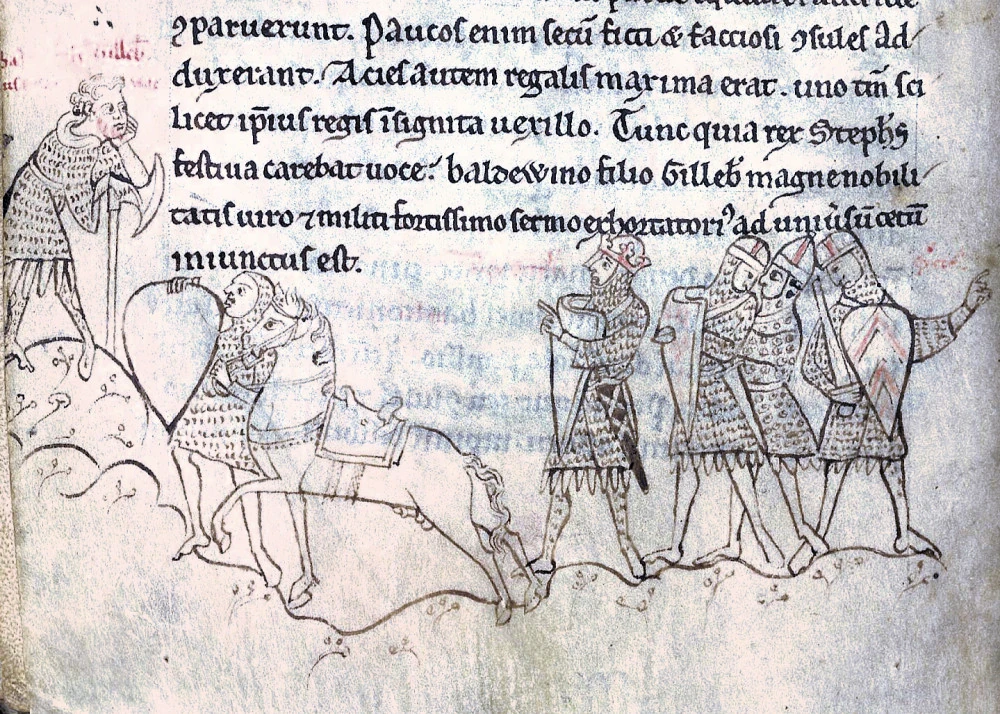 ꝯparuerunt. Paucos enim secū ficti & facciosi ꝯsules ad/
duxerant. Acies autem regalis maxima erat. uno tm̄ sci
licet ip̄ius regis īsignita uexillo. Tunc quia rex Stephs̄
festiua carebat uoce: baldewino filio Gilleb̄ magne nobili/
tatis uiro ⁊ militi fortissimo sermo exhortatoriꝰ ad uniūsū cetū
iniunctus est.